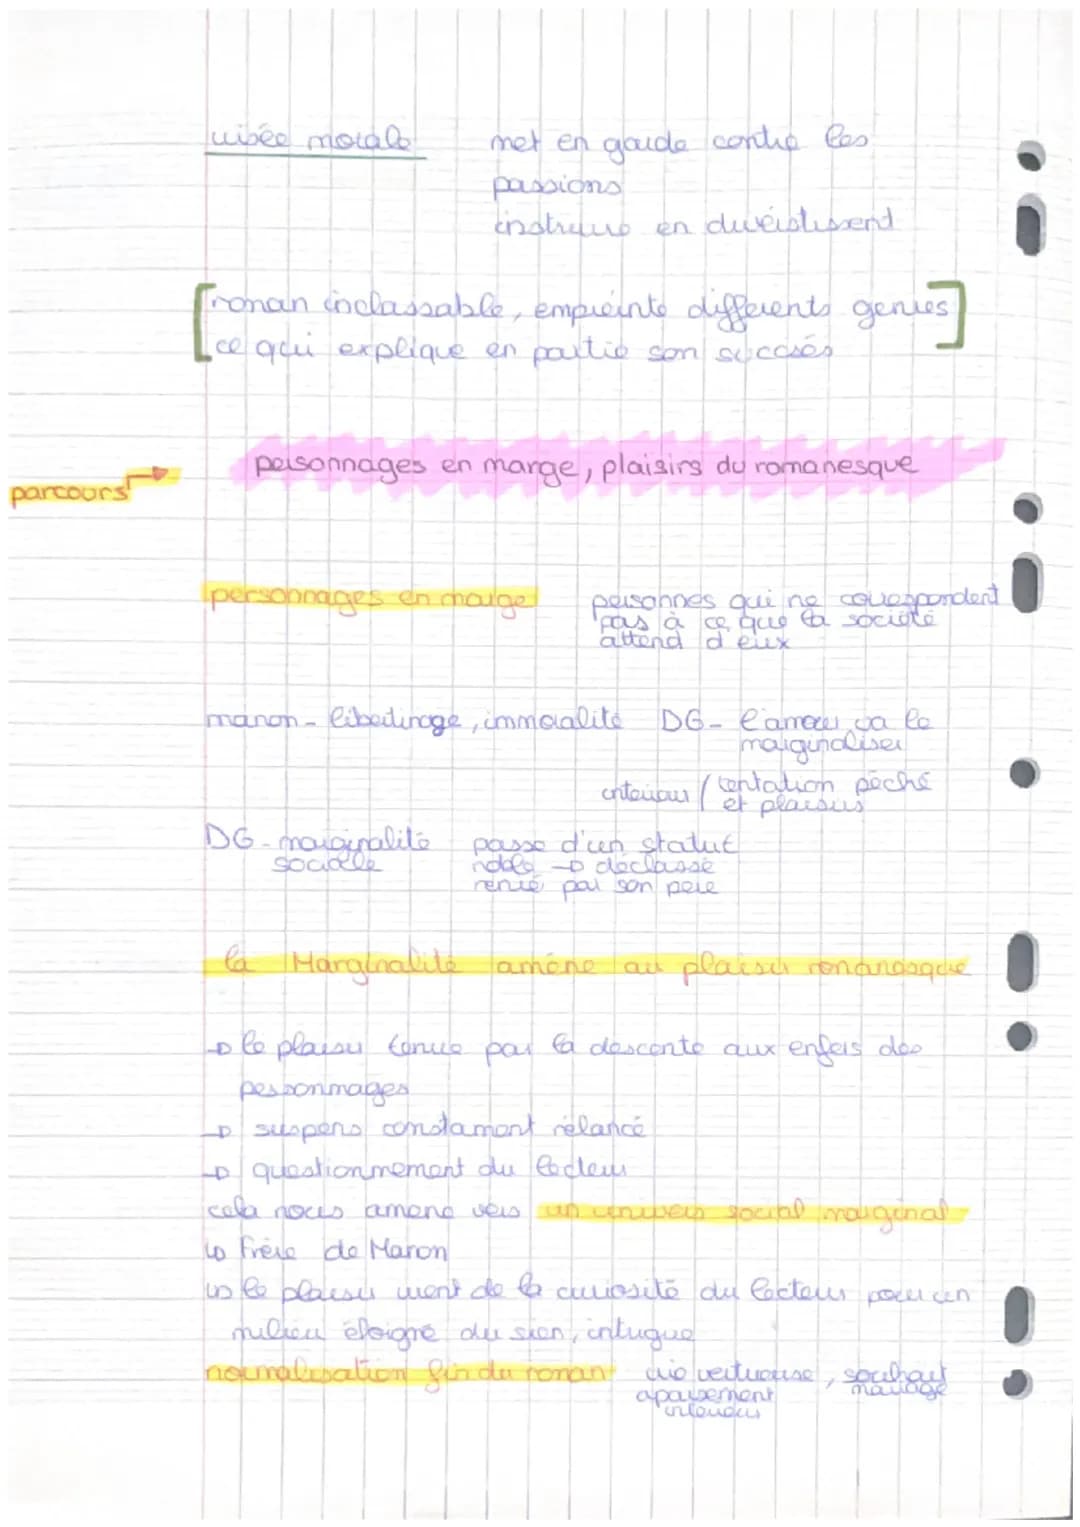 visée morale met en garde contre les
passions
instruire en divertissent
[roman inclassable, empreinte différents genres
ce qui explique en partie son succès]
parcours → personnages en marge, plaisirs du romanesque
personnages en marge personnes qui ne correspondent
pas à ce que la société
attend d'eux
manon - libertinage, immoralité DG - l'amour va le
marginaliser
intérieur / tentation péché
et plaisirs
DG - marginalité passe d'un statut
sociale noble → déclassé
renié par son père
la Marginalité amène au plaisir romanesque
→ le plaisir tenue par la descente aux enfers des
personnages
→ suspens constament rélancé
→ questionnement du lecteur
cela nous amène vers un univers social marginal
↳ Frère de Manon
↳ le plaisir vient de la curiosité du lecteur pour un
milieu éloigné du sien, intrigue
normalisation fin du roman vie vertueuse, souhait
apaisement mariage
intérieur